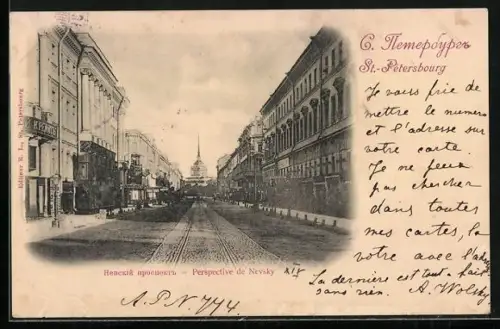 С. Петербургъ
St.-Petersbourg
Je vous prie de
mettre le numero
et l'adresse sur
votre carte.
Je ne peux
pas chercher
dans toutes
mes cartes, la
votre avec l'
La derniere est tout à fait
sans rien. A. Wolsky
Editeur R. L., St. Petersbourg
Невскій проспектъ — Perspective de Nevsky
A.P.N. 774